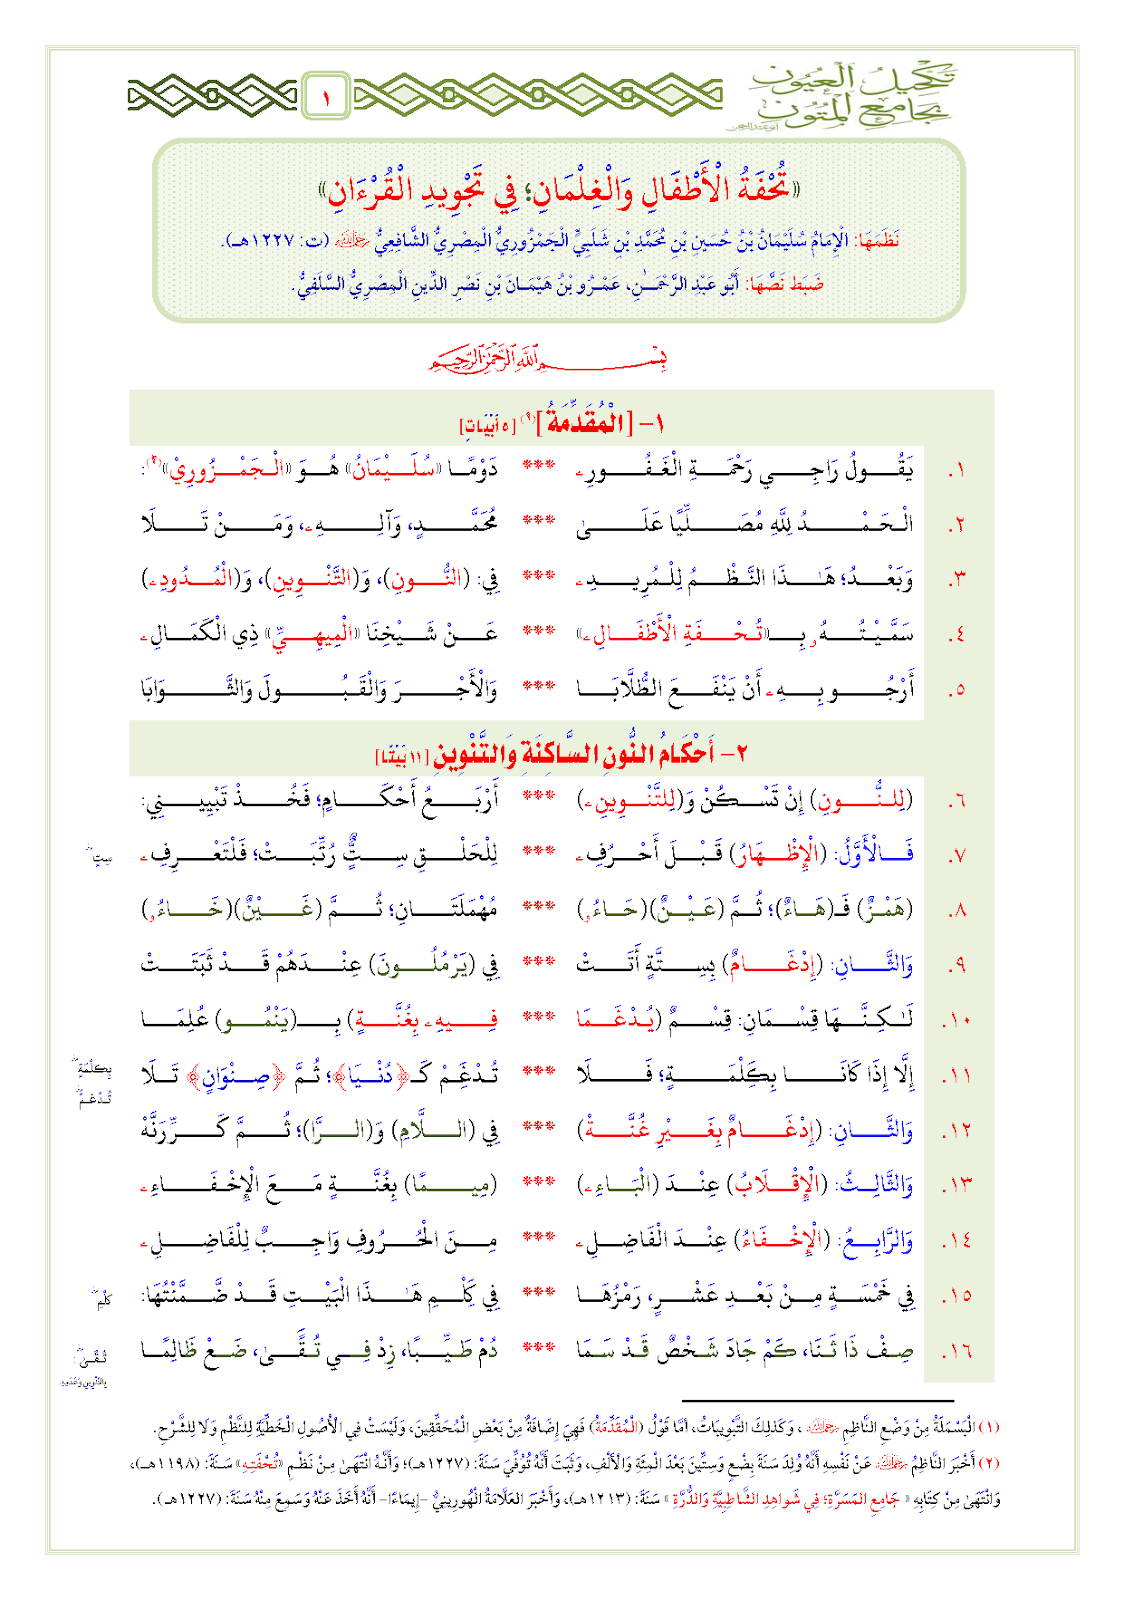 تكحيل العيون
بجامع المتون
أبو عبد الرحمن
١
«تُحْفَةُ الْأَطْفَالِ وَالْغِلْمَانِ؛ فِي تَجْوِيدِ الْقُرْءَانِ»
نَظَمَهَا: الْإِمَامُ سُلَيْمَانُ بْنُ حُسَيْنِ بْنِ مُحَمَّدِ بْنِ شَلَبِيٍّ الْجَمْزُورِيُّ الْمِصْرِيُّ الشَّافِعِيُّ رحمه الله (ت: ١٢٢٧هـ).
ضَبَطَ نَصَّهَا: أَبُو عَبْدِ الرَّحْمَـٰنِ، عَمْرُو بْنُ هَيْمَانَ بْنِ نَصْرِ الدِّينِ الْمِصْرِيُّ السَّلَفِيُّ.
بِسْمِ اللَّهِ الرَّحْمَٰنِ الرَّحِيمِ
١- [الْمُقَدِّمَةُ](١) [٥ أَبْيَاتٍ]
١. يَقُولُ رَاجِي رَحْمَةِ الْغَفُورِے *** دَوْمًا «سُلَيْمَانُ» هُوَ «الْجَمْزُورِيْ»(٢):
٢. الْحَمْدُ لِلَّهِ مُصَلِّيًا عَلَىٰ *** مُحَمَّدٍ، وَآلِهِے، وَمَنْ تَلَا
٣. وَبَعْدُ؛ هَـٰذَا النَّظْمُ لِلْمُرِيدِے *** فِي: (النُّونِ)، وَ(التَّنْوِينِ)، وَ(الْمُدُودِے)
٤. سَمَّيْتُهُۥ بِـ«تُحْفَةِ الْأَطْفَالِے» *** عَنْ شَيْخِنَا «الْمِيهِيِّ» ذِي الْكَمَالِے
٥. أَرْجُو بِهِے أَنْ يَنْفَعَ الطُّلَّابَا *** وَالْأَجْرَ وَالْقَبُولَ وَالثَّوَابَا
٢- أَحْكَامُ النُّونِ السَّاكِنَةِ وَالتَّنْوِينِ [١١ بَيْتًا]
٦. (لِلنُّونِ) إِنْ تَسْكُنْ وَ(لِلتَّنْوِينِے) *** أَرْبَعُ أَحْكَامٍ؛ فَخُذْ تَبْيِينِي:
٧. فَالْأَوَّلُ: (الْإِظْهَارُ) قَبْلَ أَحْرُفِے *** لِلْحَلْقِ سِتٌّ رُتِّبَتْ؛ فَلْتَعْرِفِے
سِتٍّ
٨. (هَمْزٌ) فَـ(هَاءٌ)؛ ثُمَّ (عَيْنٌ)(حَاءُۥ) *** مُهْمَلَتَانِ؛ ثُمَّ (غَيْنٌ)(خَاءُۥ)
٩. وَالثَّانِ: (إِدْغَامٌ) بِسِتَّةٍ أَتَتْ *** فِي (يَرْمُلُونَ) عِنْدَهُمْ قَدْ ثَبَتَتْ
١٠. لَـٰكِنَّهَا قِسْمَانِ: قِسْمٌ (يُدْغَمَا *** فِيهِے بِغُنَّةٍ) بِـ(يَنْمُو) عُلِمَا
١١. إِلَّا إِذَا كَانَا بِكِلْمَةٍ؛ فَلَا *** تُدْغَمْ كَـ﴿دُنْيَا﴾؛ ثُمَّ ﴿صِنْوَانٍ﴾ تَلَا
بِكَلْمَةٍ
تُدْغَمُ
١٢. وَالثَّانِ: (إِدْغَامٌ بِغَيْرِ غُنَّةْ) *** فِي (اللَّامِ) وَ(الرَّا)؛ ثُمَّ كَرِّرَنَّهْ
١٣. وَالثَّالِثُ: (الْإِقْلَابُ) عِنْدَ (الْبَاءِے) *** (مِيمًا) بِغُنَّةٍ مَعَ الْإِخْفَاءِے
١٤. وَالرَّابِعُ: (الْإِخْفَاءُ) عِنْدَ الْفَاضِلِے *** مِنَ الْحُرُوفِ وَاجِبٌ لِلْفَاضِلِے
١٥. فِي خَمْسَةٍ مِنْ بَعْدِ عَشْرٍ، رَمْزُهَا *** فِي كِلْمِ هَـٰذَا الْبَيْتِ قَدْ ضَّمَّنْتُهَا:
كَلْمِ
١٦. صِفْ ذَا ثَنَا، كَمْ جَادَ شَخْصٌ قَدْ سَمَا *** دُمْ طَيِّبًا، زِدْ فِي تُقًى، ضَعْ ظَالِمًا
تُقَىٰ:
بِالتَّنْوِينِ وَعَدَمِهِ
(١) الْبَسْمَلَةُ مِنْ وَضْعِ النَّاظِمِ رحمه الله، وَكَذٰلِكَ التَّبْوِيبَاتُ، أَمَّا قَوْلُ (الْمُقَدِّمَةُ) فَهِيَ إِضَافَةٌ مِنْ بَعْضِ الْمُحَقِّقِينَ، وَلَيْسَتْ فِي الْأُصُولِ الْخَطِّيَّةِ لِلنَّظْمِ وَلَا لِلشَّرْحِ.
(٢) أَخْبَرَ النَّاظِمُ رحمه الله عَنْ نَفْسِهِ أَنَّهُ وُلِدَ سَنَةَ بِضْعٍ وَسِتِّينَ بَعْدَ الْمِئَةِ وَالْأَلْفِ، وَثَبَتَ أَنَّهُ تُوُفِّيَ سَنَةَ: (١٢٢٧هـ)؛ وَأَنَّهُ انْتَهَىٰ مِنْ نَظْمِ «تُحْفَتِهِ» سَنَةَ: (١١٩٨هـ)،
وَانْتَهَىٰ مِنْ كِتَابِهِ « جَامِعِ الْمَسَرَّةِ؛ فِي شَوَاهِدِ الشَّاطِبِيَّةِ وَالدُّرَّةِ » سَنَةَ: (١٢١٣هـ)، وَأَخْبَرَ الْعَلَّامَةُ الْهُورِينِيُّ -إِيمَاءًا- أَنَّهُ أَخَذَ عَنْهُ وَسَمِعَ مِنْهُ سَنَةَ: (١٢٢٧هـ).